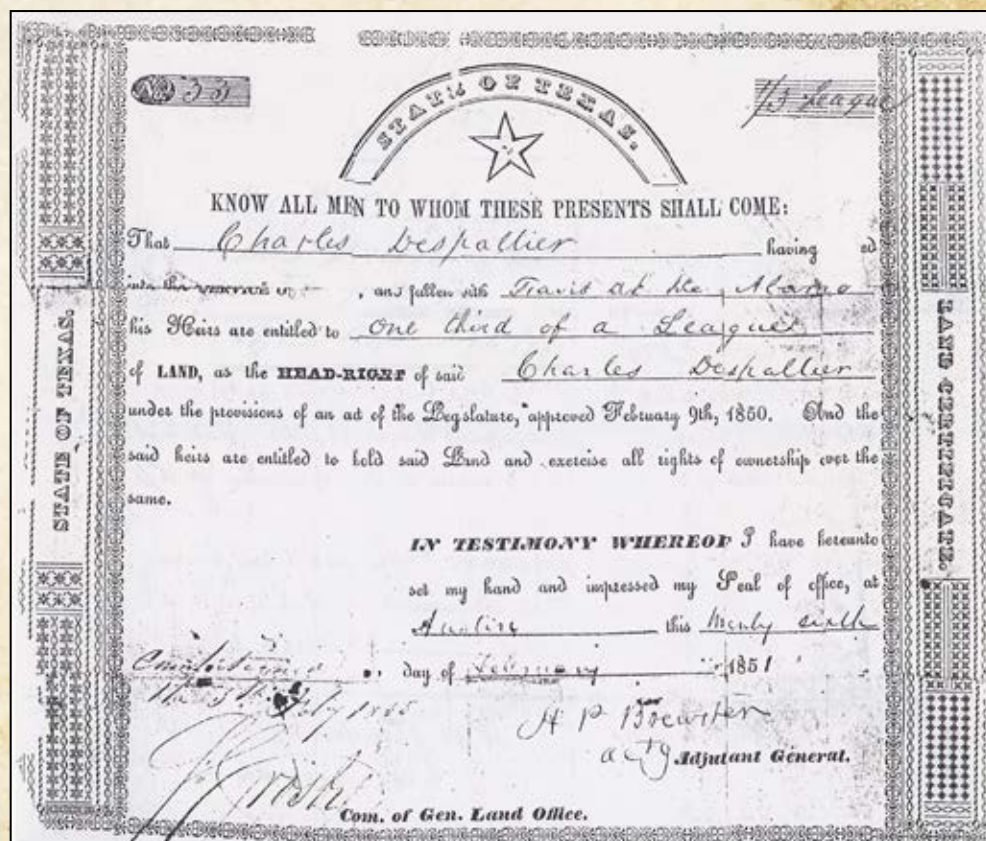 No 33
1/3 League
STATE OF TEXAS.
KNOW ALL MEN TO WHOM THESE PRESENTS SHALL COME:
That Charles Despallier having ed
into the service of , and fallen with Travis at the Alamo
his Heirs are entitled to One third of a League
of LAND, as the HEAD-RIGHT of said Charles Despallier
under the provisions of an act of the Legislature, approved February 9th, 1850. And the
said heirs are entitled to hold said Land and exercise all rights of ownership over the
same.
IN TESTIMONY WHEREOF I have hereunto
set my hand and impressed my Seal of office, at
Austin this twenty sixth
day of February 1851
H P Brewster
actg Adjutant General.
Countersigned
Com. of Gen. Land Office.
STATE OF TEXAS.
LAND CERTIFICATE.